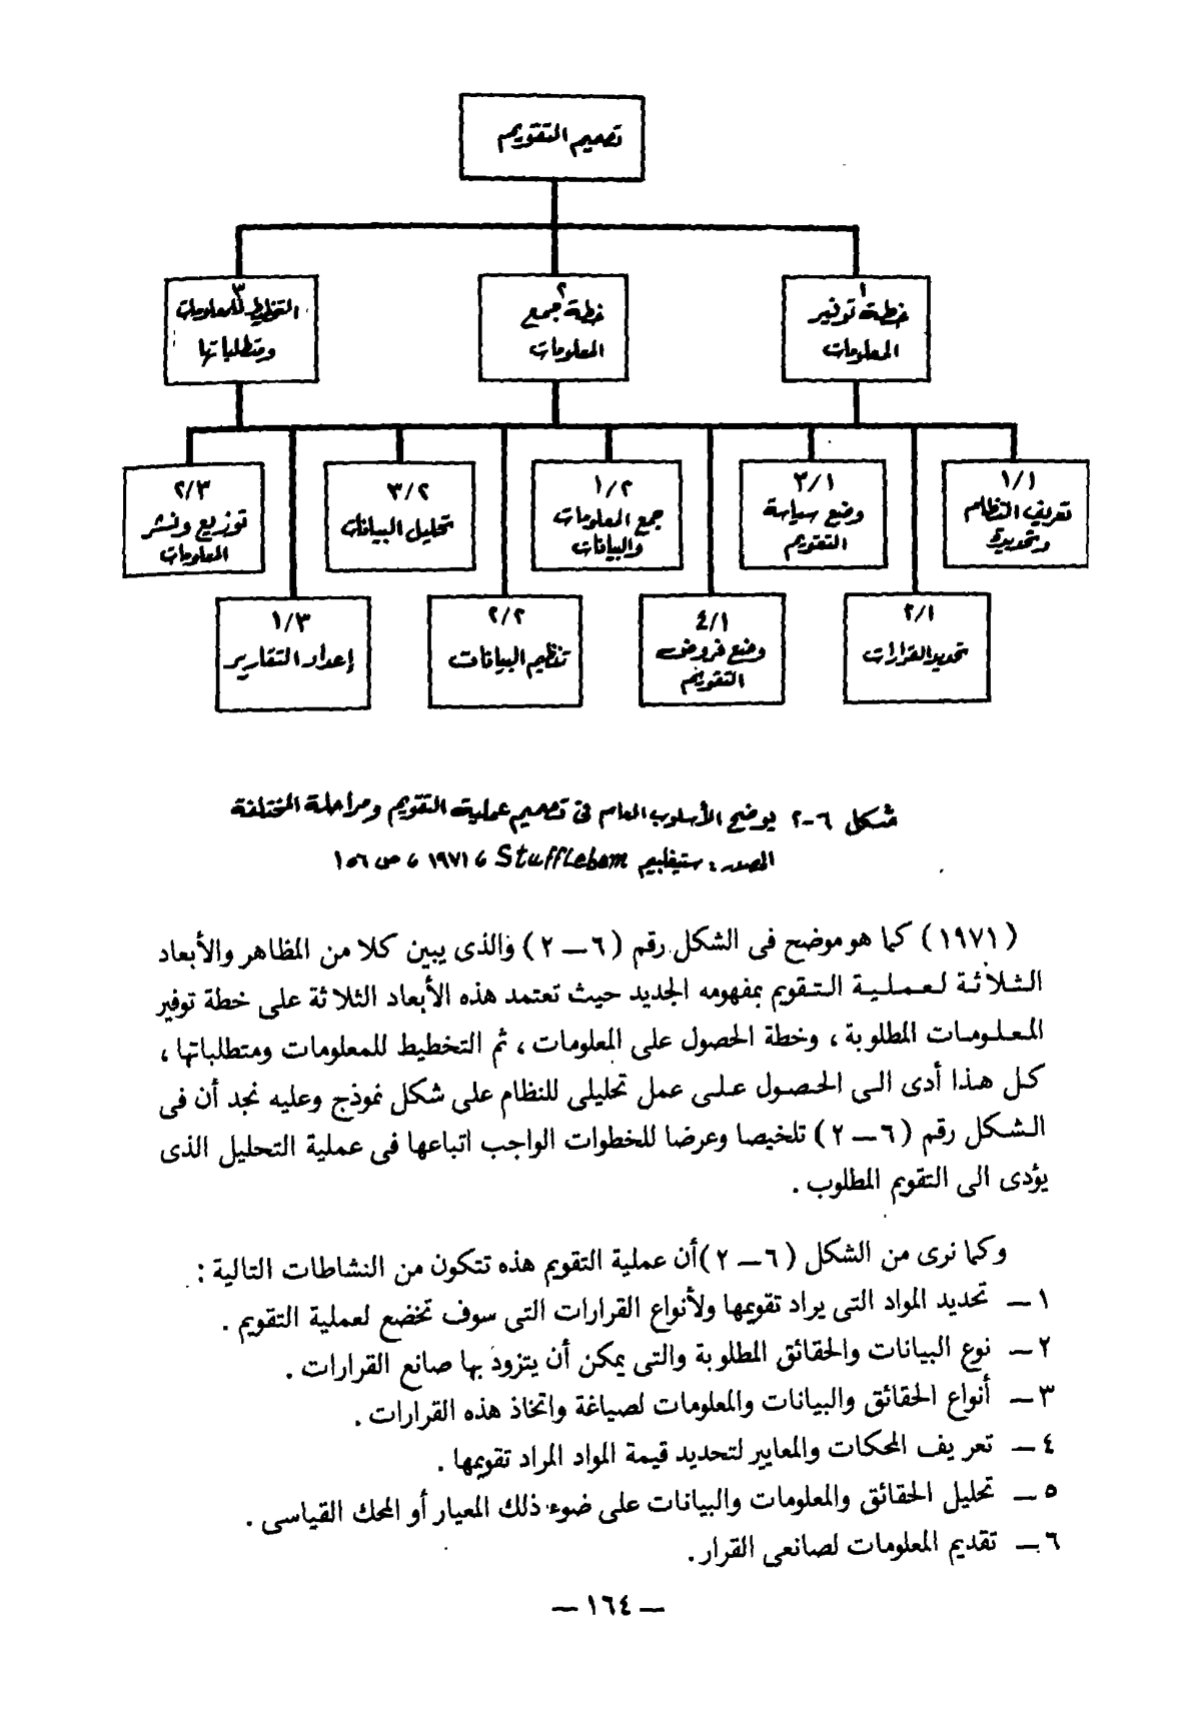 تصميم التقويم
١
خطة توفير
المعلومات
٢
خطة جمع
المعلومات
٣
التخطيط للمعلومات
ومتطلباتها
١/١
تعريف النظام
وتحديده
٣/١
وضع سياسة
التقويم
١/٢
جمع المعلومات
والبيانات
٣/٢
تحليل البيانات
٢/٣
توزيع ونشر
المعلومات
٢/١
تحديد القرارات
٤/١
وضع فروض
التقويم
٢/٢
تنظيم البيانات
١/٣
إعداد التقارير
شكل ٦-٢ يوضح الأسلوب العام فى تصميم عملية التقويم ومراحله المختلفة
المصدر : ستيفلبيم Stufflebem ، ١٩٧١ ، ص ١٥٦
(١٩٧١) كما هو موضح فى الشكل رقم (٦ــ٢) والذى يبين كلا من المظاهر والأبعاد
الثلاثة لعملية التقويم بمفهومه الجديد حيث تعتمد هذه الأبعاد الثلاثة على خطة توفير
المعلومات المطلوبة ، وخطة الحصول على المعلومات ، ثم التخطيط للمعلومات ومتطلباتها ،
كل هذا أدى الى الحصول على عمل تحليلى للنظام على شكل نموذج وعليه نجد أن فى
الشكل رقم (٦ــ٢) تلخيصا وعرضا للخطوات الواجب اتباعها فى عملية التحليل الذى
يؤدى الى التقويم المطلوب .
وكما نرى من الشكل (٦ــ٢) أن عملية التقويم هذه تتكون من النشاطات التالية :
١ــ تحديد المواد التى يراد تقويمها ولأنواع القرارات التى سوف تخضع لعملية التقويم .
٢ــ نوع البيانات والحقائق المطلوبة والتى يمكن أن يتزود بها صانع القرارات .
٣ــ أنواع الحقائق والبيانات والمعلومات لصياغة واتخاذ هذه القرارات .
٤ــ تعريف المحكات والمعايير لتحديد قيمة المواد المراد تقويمها .
٥ــ تحليل الحقائق والمعلومات والبيانات على ضوء ذلك المعيار أو المحك القياسى .
٦ــ تقديم المعلومات لصانعى القرار .
ــ ١٦٤ ــ